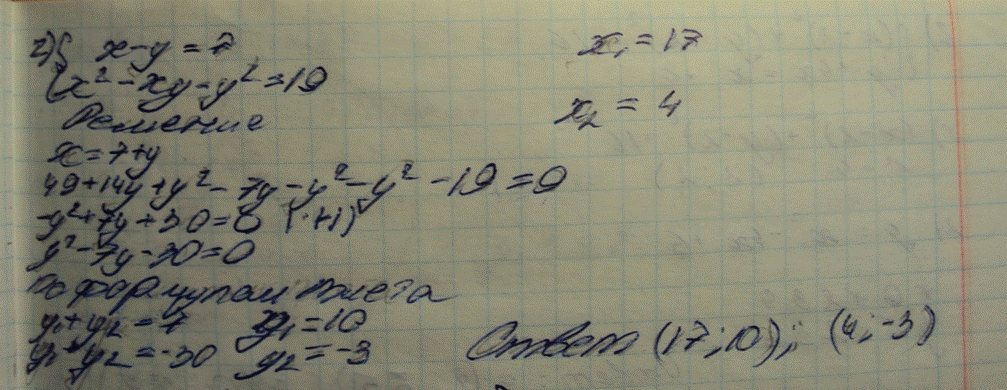 г) { x - y = 7
{ x² - xy - y² = 19
Решение
x = 7 + y
49 + 14y + y² - 7y - y² - y² - 19 = 0
-y² + 7y + 30 = 0
y² - 7y - 30 = 0
По формулам Виета
y₁ + y₂ = 7 y₁ = 10
y₁ · y₂ = -30 y₂ = -3
x₁ = 17
x₂ = 4
Ответ (17; 10); (4; -3)